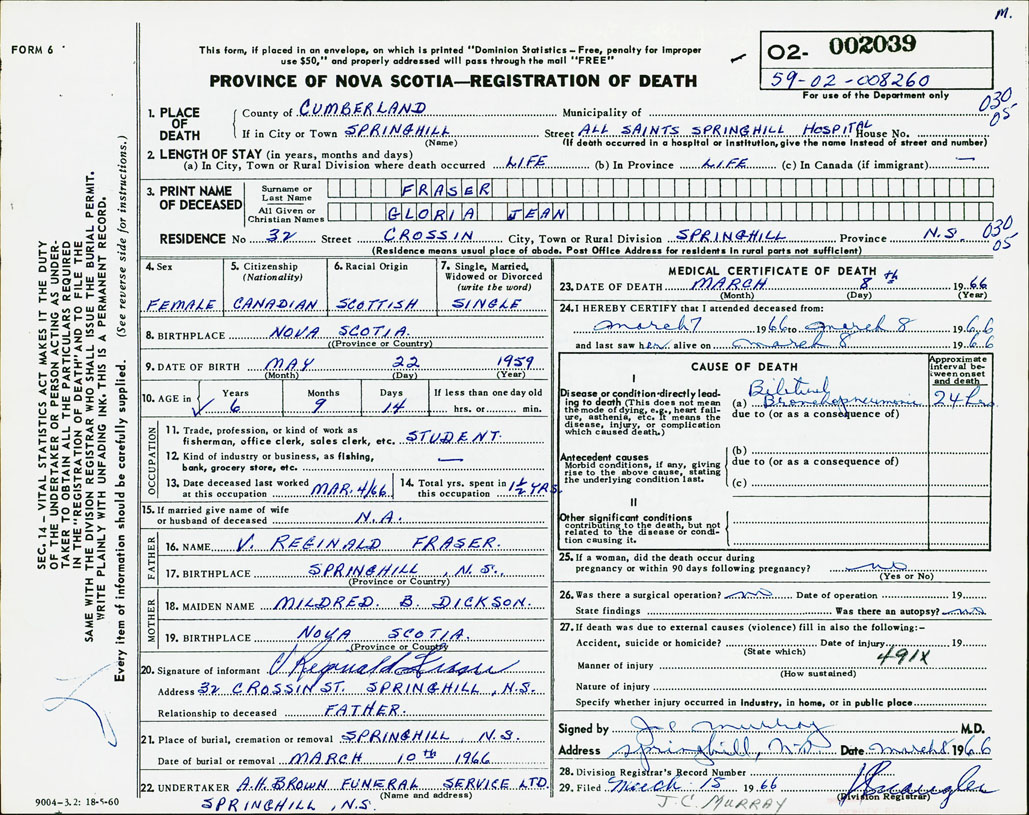 M.
FORM 6
This form, if placed in an envelope, on which is printed "Dominion Statistics – Free, penalty for improper
use $50," and properly addressed will pass through the mail "FREE"
PROVINCE OF NOVA SCOTIA—REGISTRATION OF DEATH
02- 002039
59-02-008260
For use of the Department only
030
05
1. PLACE OF DEATH
County of CUMBERLAND Municipality of
If in City or Town SPRINGHILL Street ALL SAINTS SPRINGHILL HOSPITAL House No.
(Name) (If death occurred in a hospital or institution, give the name instead of street and number)
2. LENGTH OF STAY (in years, months and days)
(a) In City, Town or Rural Division where death occurred LIFE (b) In Province LIFE (c) In Canada (if immigrant) —
3. PRINT NAME OF DECEASED
Surname or Last Name FRASER
All Given or Christian Names GLORIA JEAN
RESIDENCE No 32 Street CROSSIN City, Town or Rural Division SPRINGHILL Province N.S. 030
05
(Residence means usual place of abode. Post Office Address for residents in rural parts not sufficient)
4. Sex
FEMALE
5. Citizenship
(Nationality)
CANADIAN
6. Racial Origin
SCOTTISH
7. Single, Married,
Widowed or Divorced
(write the word)
SINGLE
8. BIRTHPLACE NOVA SCOTIA.
((Province or Country)
9. DATE OF BIRTH MAY 22 1959
(Month) (Day) (Year)
10. AGE in Years Months Days If less than one day old
6 9 14 hrs. or min.
OCCUPATION
11. Trade, profession, or kind of work as
fisherman, office clerk, sales clerk, etc. STUDENT.
12. Kind of industry or business, as fishing,
bank, grocery store, etc. —
13. Date deceased last worked
at this occupation MAR. 4/66
14. Total yrs. spent in
this occupation 1½ YRS.
15. If married give name of wife
or husband of deceased N.A.
FATHER
16. NAME V. REGINALD FRASER.
17. BIRTHPLACE SPRINGHILL, N.S.
(Province or Country)
MOTHER
18. MAIDEN NAME MILDRED. B. DICKSON.
19. BIRTHPLACE NOVA SCOTIA.
(Province or Country)
20. Signature of informant V Reginald Fraser
Address 32 CROSSIN ST. SPRINGHILL, N.S.
Relationship to deceased FATHER.
21. Place of burial, cremation or removal SPRINGHILL, N.S.
Date of burial or removal MARCH 10th 1966
22. UNDERTAKER A.H. BROWN FUNERAL SERVICE LTD.
(Name and address)
SPRINGHILL, N.S.
9004-3.2: 18-5-60
MEDICAL CERTIFICATE OF DEATH
23. DATE OF DEATH MARCH 8th 1966
(Month) (Day) (Year)
24. I HEREBY CERTIFY that I attended deceased from:
march 7 1966 to march 8 1966
and last saw her alive on march 8 1966
CAUSE OF DEATH
Approximate
interval be-
tween onset
and death
I
Disease or condition directly lead-
ing to death (This does not mean
the mode of dying, e.g., heart fail-
ure, asthenia, etc. It means the
disease, injury, or complication
which caused death.)
(a) Bronchopneumonia 24 hrs
due to (or as a consequence of)
Antecedent causes
Morbid conditions, if any, giving
rise to the above cause, stating
the underlying condition last.
(b)
due to (or as a consequence of)
(c)
II
Other significant conditions
contributing to the death, but not
related to the disease or condi-
tion causing it.
25. If a woman, did the death occur during
pregnancy or within 90 days following pregnancy? no
(Yes or No)
26. Was there a surgical operation? no Date of operation 19
State findings Was there an autopsy? no
27. If death was due to external causes (violence) fill in also the following:–
Accident, suicide or homicide? Date of injury 19
(State which)
491X
Manner of injury
(How sustained)
Nature of injury
Specify whether injury occurred in industry, in home, or in public place
Signed by J.C. Murray M.D.
Address Springhill, N.S. Date March 8 1966
28. Division Registrar's Record Number
29. Filed March 15 1966
(Division Registrar)
J.C. MURRAY
SEC. 14 – VITAL STATISTICS ACT MAKES IT THE DUTY
OF THE UNDERTAKER OR PERSON ACTING AS UNDER-
TAKER TO OBTAIN ALL THE PARTICULARS REQUIRED
IN THE "REGISTRATION OF DEATH" AND TO FILE THE
SAME WITH THE DIVISION REGISTRAR WHO SHALL ISSUE THE BURIAL PERMIT.
WRITE PLAINLY WITH UNFADING INK. THIS IS A PERMANENT RECORD.
Every item of information should be carefully supplied. (See reverse side for instructions.)